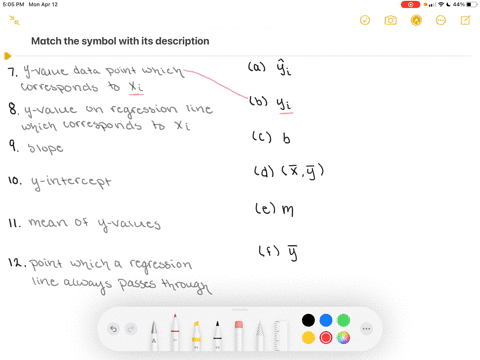 5:05 PM Mon Apr 12
44%
Match the symbol with its description
7. y-value data point which
corresponds to xᵢ
8. y-value on regression line
which corresponds to xᵢ
9. slope
10. y-intercept
11. mean of y-values
12. point which a regression
line always passes through
(a) ŷᵢ
(b) yᵢ
(c) b
(d) (x̅, y̅)
(e) m
(f) y̅